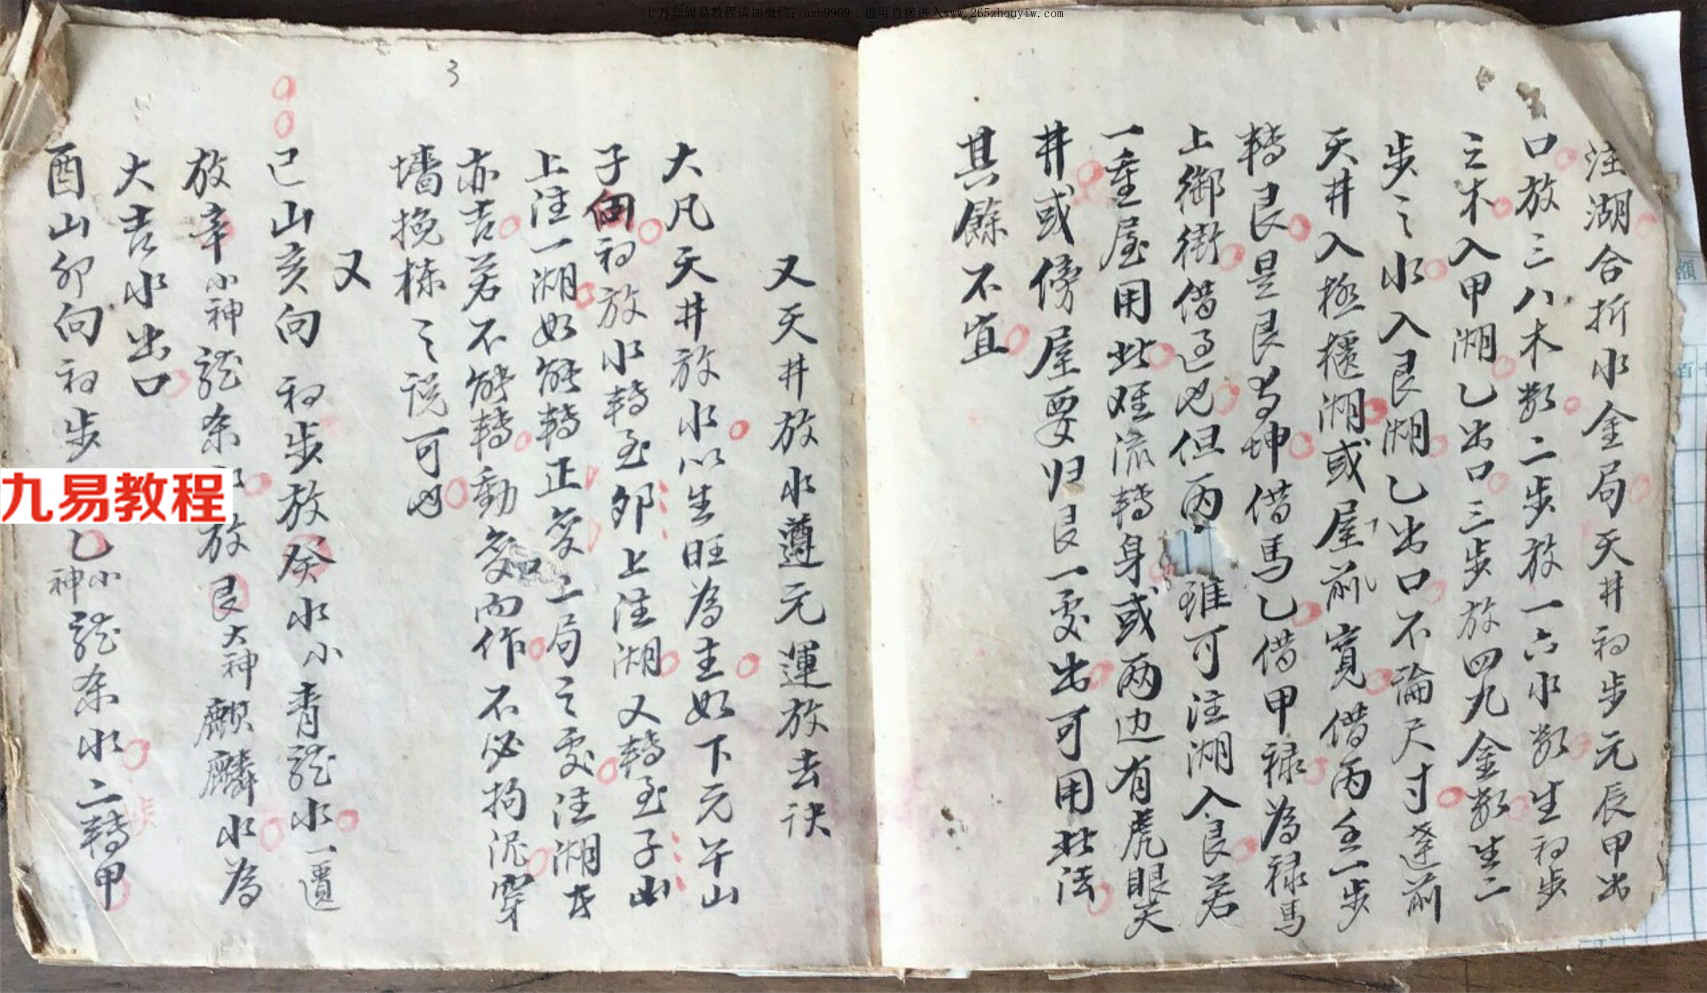 注湖合折水金局天井初步元辰甲出
口放三八木數二步放一六水數生初步
之木入甲湖乙出口三步放四九金數生二
步之水入艮湖乙出口不論尺寸達前
天井入極櫃湖或屋前寬借丙壬一步
轉艮是艮為坤借馬乙借甲禄為禄馬
上御街借過也但丙雖可注湖入艮若
一重屋用此难流轉身或两边有虎眼天
井或傍屋要归艮一处出可用此法
其餘不宜
又天井放水遵元運放去诀
大凡天井放水以生旺為主如下元午山
子向初放水轉至卯上注湖又轉至子山
上注一湖如能轉正变上局之处注湖去
亦吉若不能轉動变而作不必拘泥穿
墙挽栋之说可也
又
巳山亥向 初步放癸水小青龍水一還
放辛小神龍条水放艮大神麒麟水為
大吉水出口
酉山卯向初步乙小神龍条水二轉甲
3
九易教程
www.265zhouyiw.com